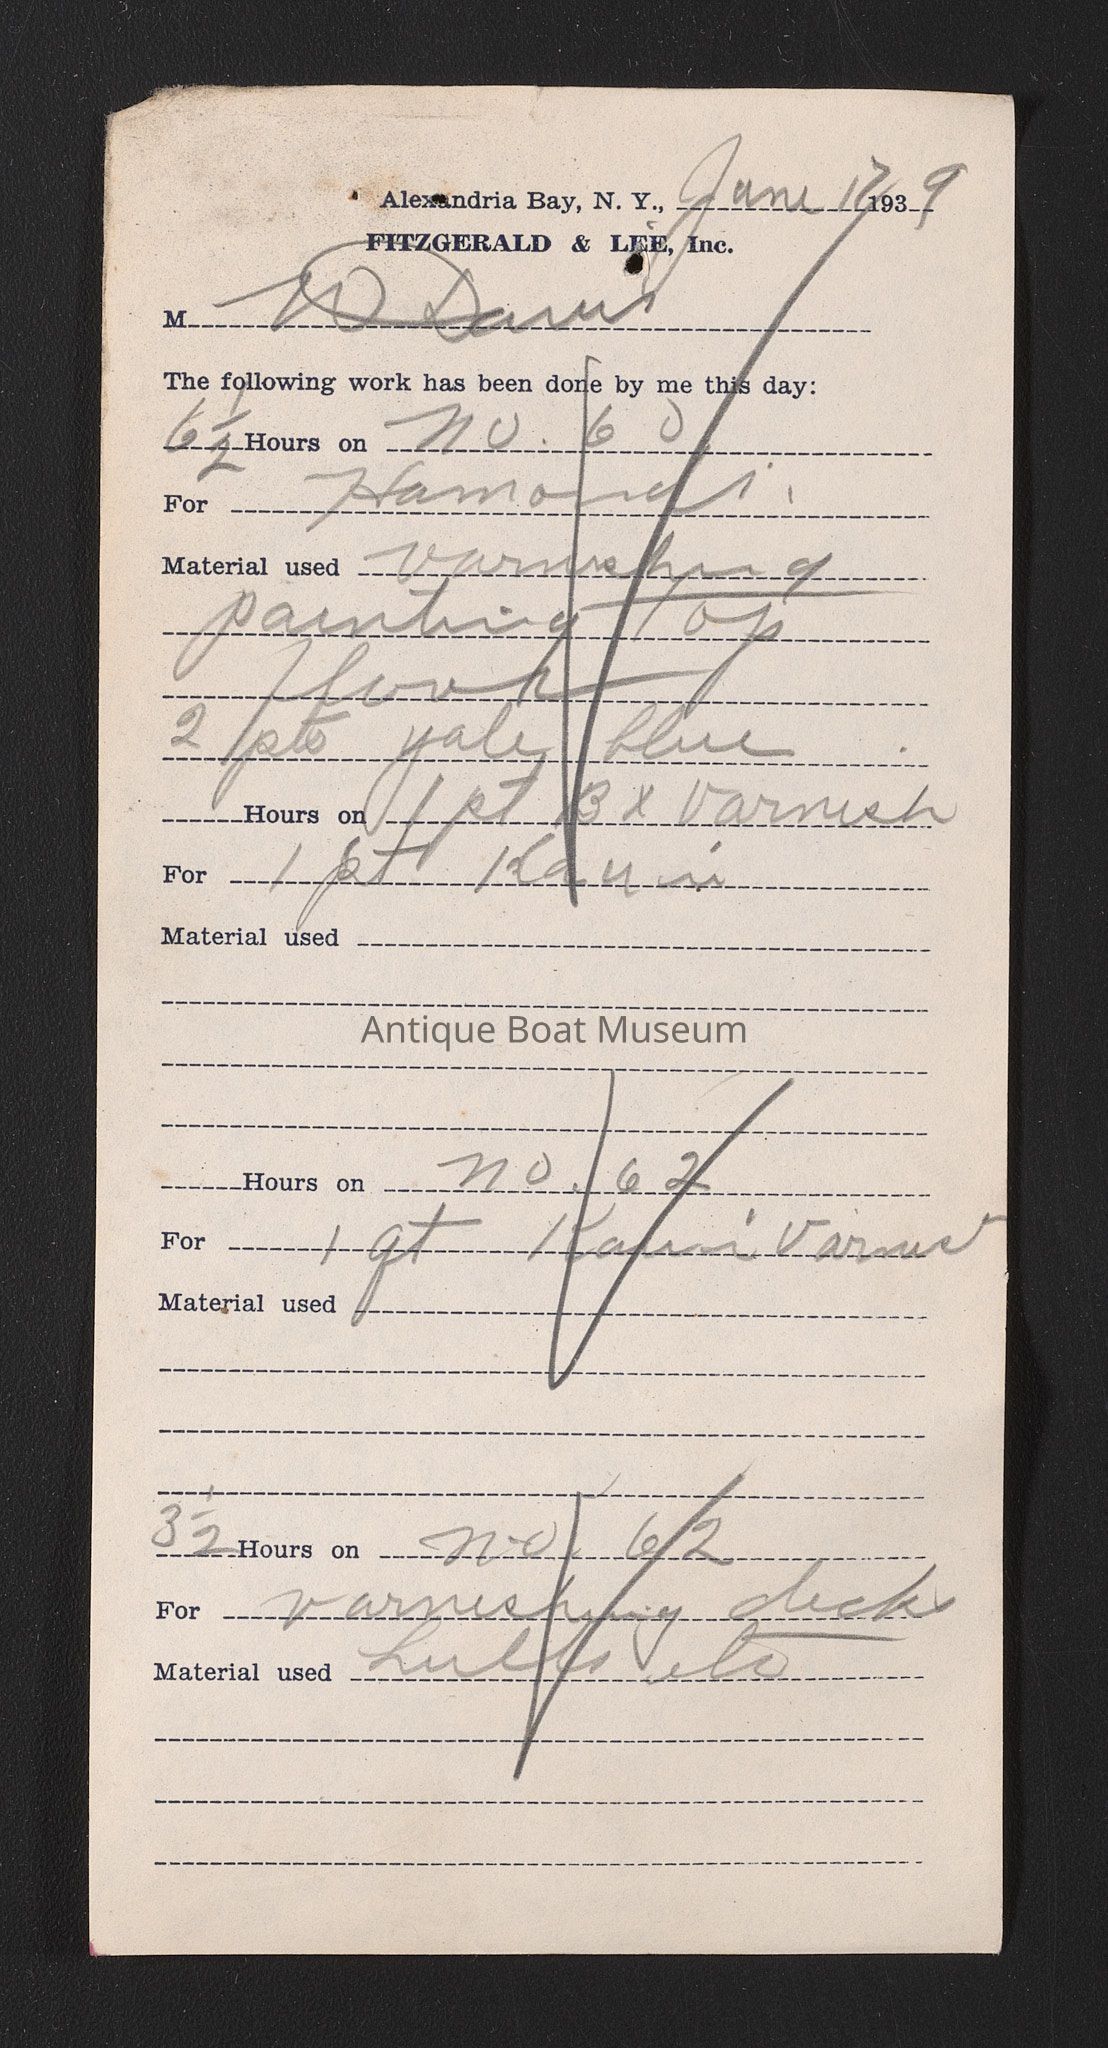 Alexandria Bay, N. Y., June 17 1939
FITZGERALD & LEE, Inc.
M W Davis
The following work has been done by me this day:
6 1/2 Hours on No. 60.
For
Material used varnishing
painting top
floor
2 pts yale blue
Hours on 1 pt B X Varnish
For 1 pt Kauri
Material used
Antique Boat Museum
Hours on No. 62
For 1 qt Kauri Varnis
Material used
3 1/2 Hours on No. 62
For varnishing decks
Material used etc